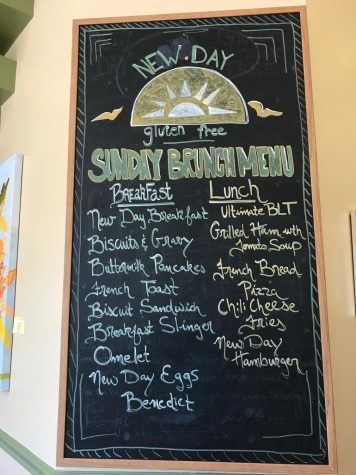 NEW · DAY
gluten free
SUNDAY BRUNCH MENU
Breakfast
New Day Breakfast
Biscuits & Gravy
Buttermilk Pancakes
French Toast
Biscuit Sandwich
Breakfast Slinger
Omelet
New Day Eggs
Benedict
Lunch
Ultimate BLT
Grilled Ham with
Tomato Soup
French Bread
Pizza
Chili Cheese
Fries
New Day
Hamburger